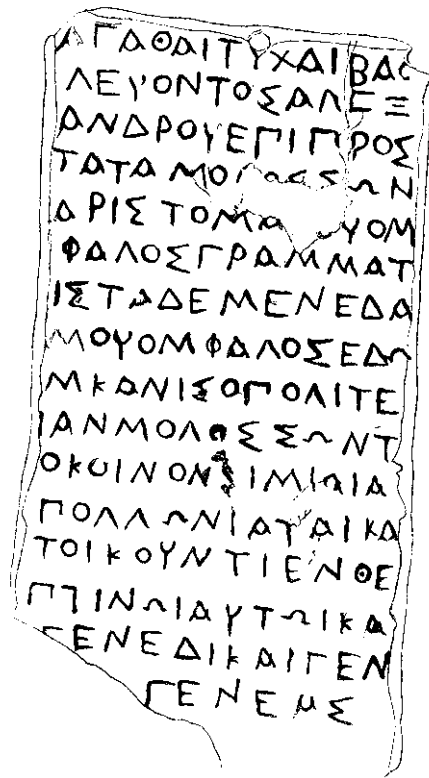 ΑΓΑΘΑΙΤΥΧΑΙΒΑΣ
ΛΕΥΟΝΤΟΣΑΛΕΞ
ΑΝΔΡΟΥΕΠΙΠΡΟΣ
ΤΑΤΑΜΟΛΟΣΣΩΝ
ΑΡΙΣΤΟΜΑ ΟΥΟΜ
ΦΑΛΟΣΓΡΑΜΜΑΤ
ΙΣΤΑΔΕΜΕΝΕΔΑ
ΜΟΥΟΜΦΑΛΟΣΕΔΩ
ΜΚΑΝΙΣΟΠΟΛΙΤΕ
ΙΑΝΜΟΛΟΣΣΩΝΤ
ΟΚΟΙΝΟΝΣΙΜΙΑΙΑ
ΠΟΛΛΩΝΙΑΤΑΙΚΑ
ΤΟΙΚΟΥΝΤΙΕΝΘΕ
ΠΤΙΝΩΙΑΥΤΩΙΚΑ
ΓΕΝΕΔΙΚΑΙΓΕΝ
ΓΕΝΕΜΣ